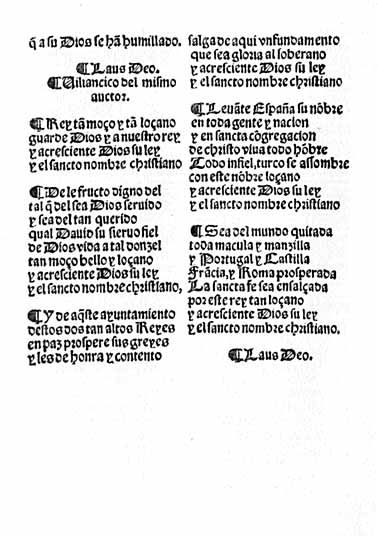 q̃ a su Dios se hã humillado.
¶ Laus Deo.
¶ Uiliancico del mismo
auctor.
¶ Rey tã moço y tã loçano
guarde Dios y a nuestro rey
y acresciente Dios su ley
y el sancto nombre christiano
¶ De le fructo digno del
tal q̃ del sea Dios seruido
y sea del tan querido
qual Dauid su sieruo fiel
de Dios vida a tal donzel
tan moço bello y loçano
y acresciente Dios su ley
y el sancto nombre christiano,
¶ Y de aq̃ste ayuntamiento
destos dos tan altos Reyes
en paz prospere sus greyes
y les de honra y contento
salga de aqui vn fundamento
que sea gloria al soberano
y acresciente Dios su ley
y el sancto nombre christiano
¶ Leuãte España su nõbre
en toda gente y nacion
y en sancta cõgregacion
de christo viua todo hõbre
Todo infiel, turco se assombre
con este nõbre loçano
y acresciente Dios su ley
y el sancto nombre christiano
¶ Sea del mundo quitada
toda macula y manzilla
y Portugal y Castilla
Frãcia, y Roma prosperada
La sancta fe sea ensalçada
por este rey tan loçano
y acresciente Dios su ley
y el sancto nombre christiano.
¶ Laus Deo.